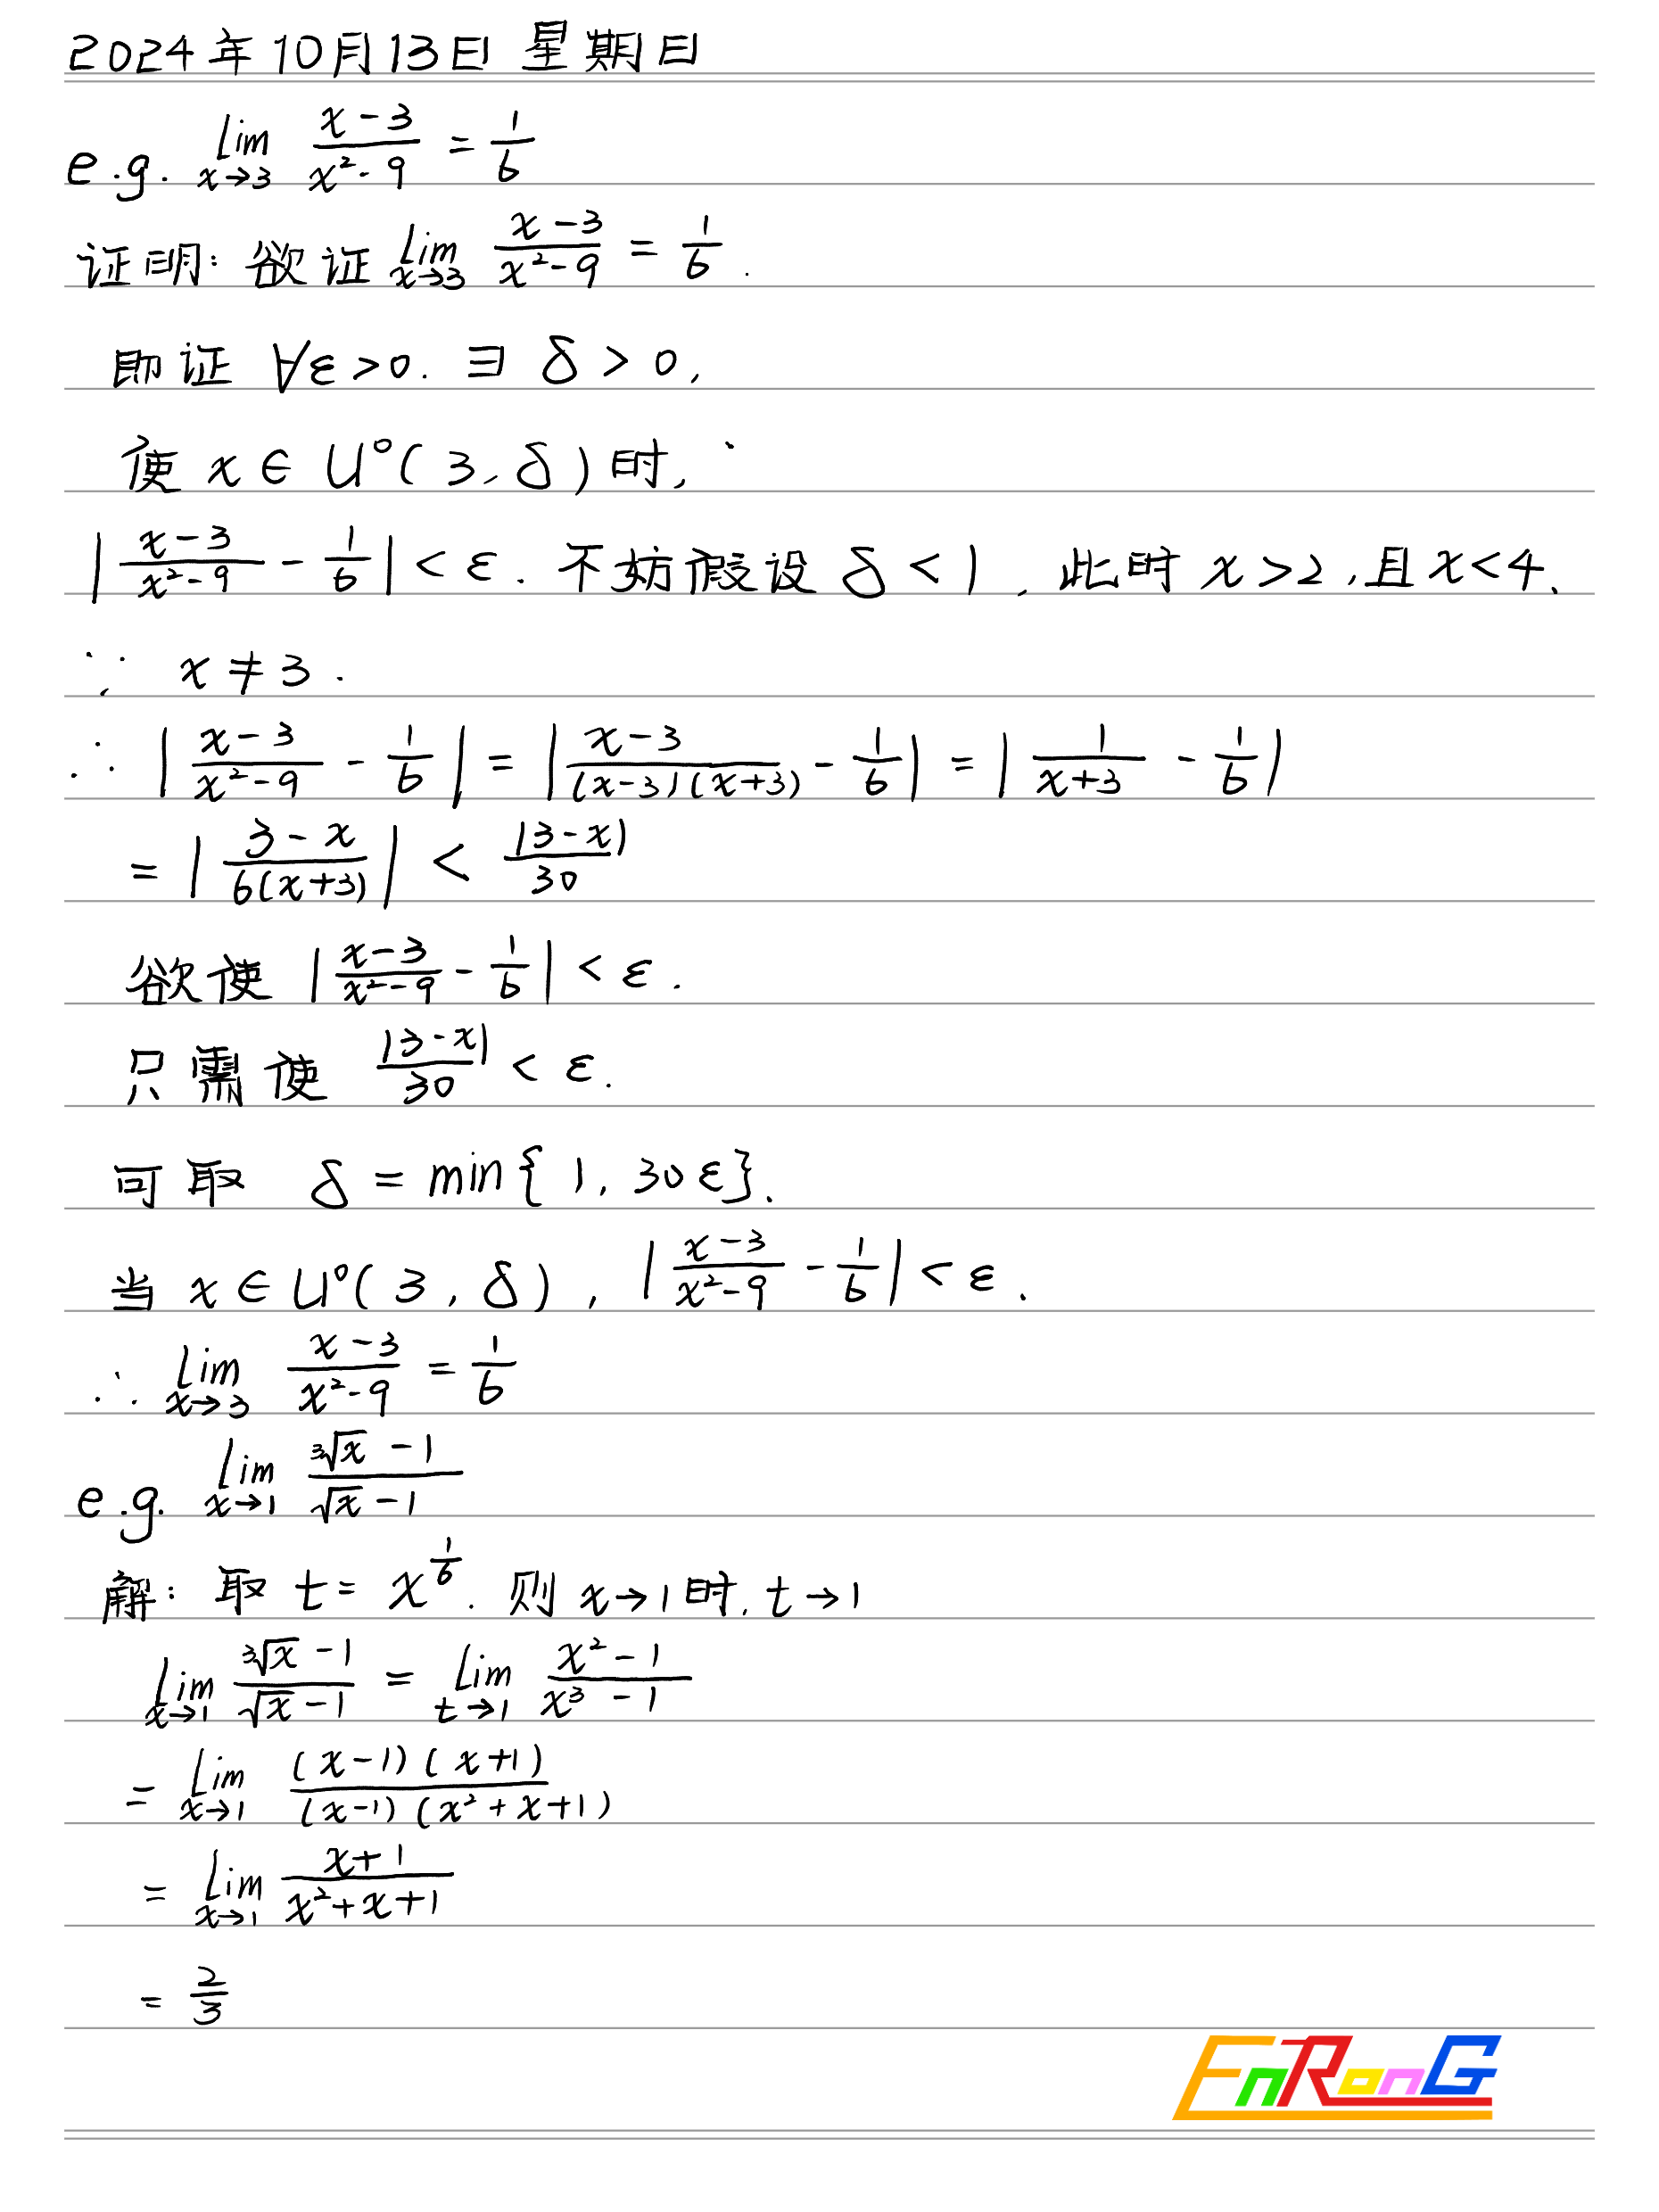 2024年10月13日 星期日
e.g. lim_{x→3} (x-3)/(x²-9) = 1/6
证明: 欲证 lim_{x→3} (x-3)/(x²-9) = 1/6.
即证 ∀ε>0. ∃ δ>0,
使 x∈U°(3,δ)时,
|(x-3)/(x²-9) - 1/6| < ε. 不妨假设 δ<1, 此时 x>2,且x<4.
∵ x≠3.
∴ |(x-3)/(x²-9) - 1/6| = |(x-3)/((x-3)(x+3)) - 1/6| = |1/(x+3) - 1/6|
= |(3-x)/(6(x+3))| < |3-x|/30
欲使 |(x-3)/(x²-9) - 1/6| < ε.
只需使 |3-x|/30 < ε.
可取 δ = min{1, 30ε}.
当 x∈U°(3,δ), |(x-3)/(x²-9) - 1/6| < ε.
∴ lim_{x→3} (x-3)/(x²-9) = 1/6
e.g. lim_{x→1} (³√x - 1)/(√x - 1)
解: 取 t = x^{1/6}. 则 x→1时, t→1
lim_{x→1} (³√x - 1)/(√x - 1) = lim_{t→1} (x²-1)/(x³-1)
= lim_{x→1} ((x-1)(x+1))/((x-1)(x²+x+1))
= lim_{x→1} (x+1)/(x²+x+1)
= 2/3
EnRonG